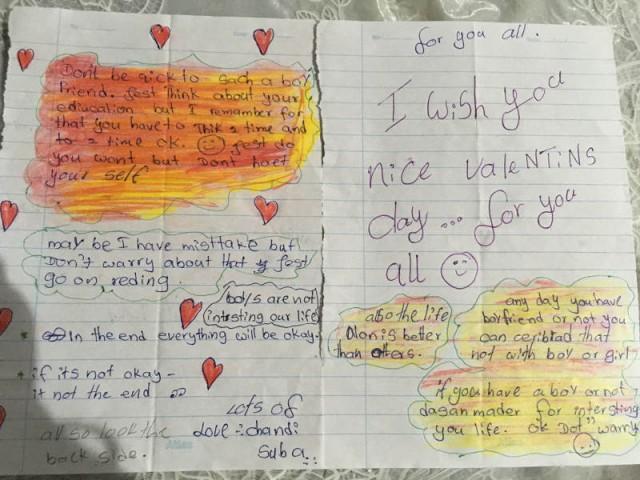 Don't be qick to sach a boy
friend. fest Think about your
education but I remember for
that you have to thik 2 time and
to 2 time ok. fest do
you wont but Dont hoet
your self
may be I have misttake but
Don't warry about that fest
go on reding.
boys are not
intresting our life
In the end everything will be okay.
if its not okay -
it not the end
also look the
back side.
Lots of
Love :- chandi
suba..
for you all.
I wish you
nice valeNTiNS
day ... for you
all
also the life
Olon is better
than others.
any day you have
boyfriend or not you
can ceribrad that
not with boy or girl
if you have a boy or not
dasan mader for intersting
you life. ok Dot" warry